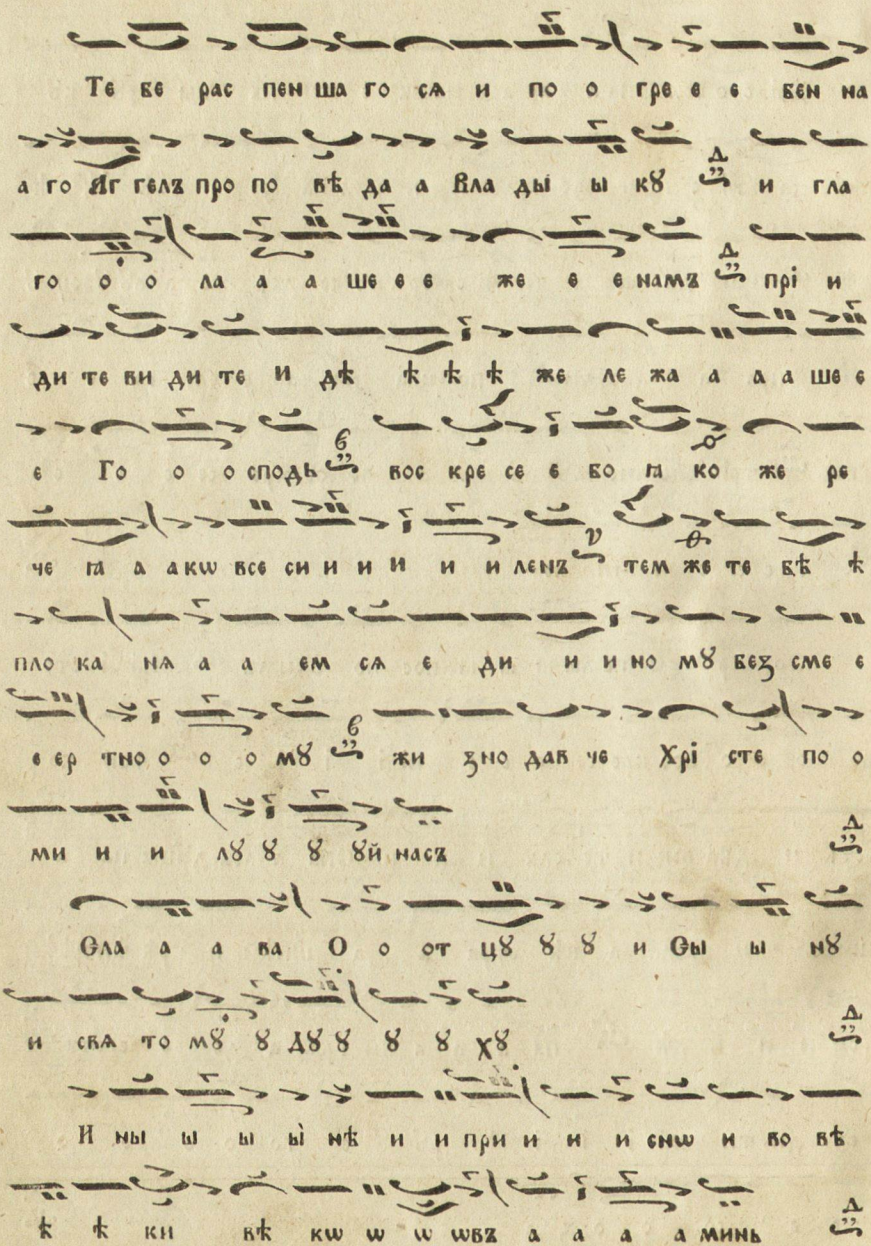 Те бе рас пен ша го сѧ и по о гре е е бен на
а го Аг гелъ про по вѣ да а Вла ды ы кꙋ и гла
го о о ла а а ше е е же е е намъ прї и
ди те ви ди те и дѣ ѣ ѣ ѣ же ле жа а а а ше е
е Го о о сподь вос кре се е бо ꙗ ко же ре
че ꙗ а акѡ все си и и и и и ленъ тем же те бѣ ѣ
пло ка нѧ а а ем сѧ е ди и и но мꙋ без сме е
е ер тно о о о мꙋ жи зно дав че Хрі сте по о
ми и и лꙋ ꙋ ꙋ ꙋй насъ
Сла а а ва О о от цꙋ ꙋ ꙋ и Сы ы нꙋ
и свѧ то мꙋ ꙋ дꙋ ꙋ ꙋ ꙋ хꙋ
И ны ы ы ы̀ нѣ и и при и и и снѡ и во вѣ
ѣ ѣ ки вѣ кѡ ѡ ѡ ѡвъ а а а а минь